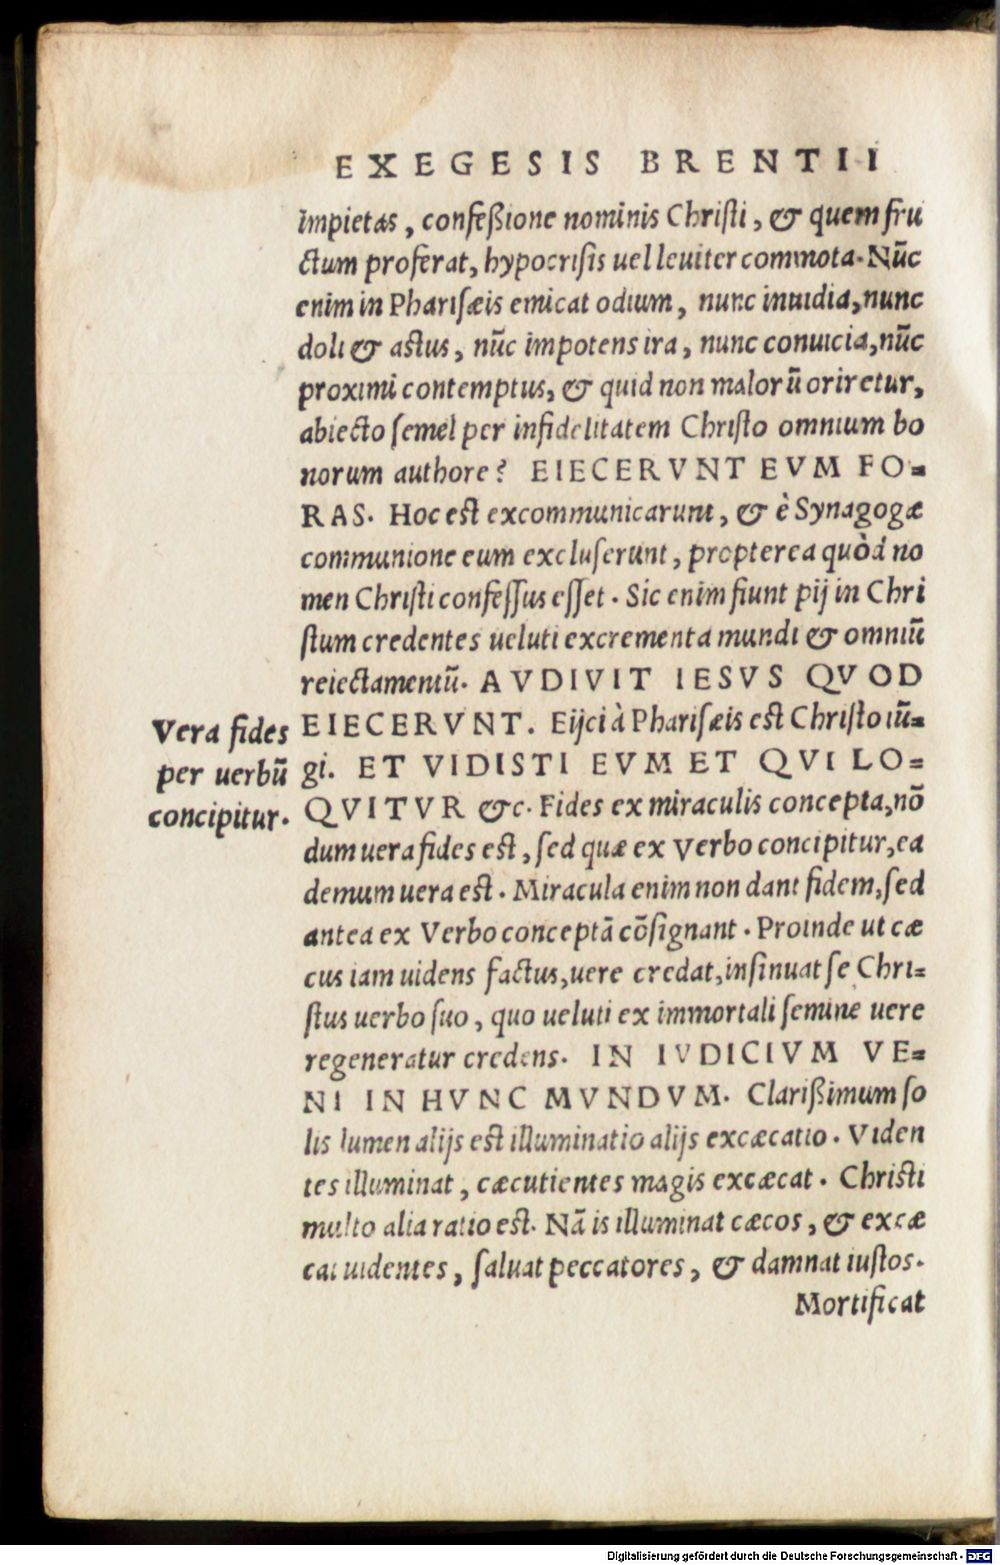 EXEGESIS BRENTII
impietas, confeßione nominis Christi, & quem fru
ctum proferat, hypocrisis uel leuiter commota. Nūc
enim in Pharisæis emicat odium, nunc inuidia, nunc
doli & astus, nūc impotens ira, nunc conuicia, nūc
proximi contemptus, & quid non malorū oriretur,
abiecto semel per infidelitatem Christo omnium bo
norum authore? EIECERVNT EVM FO=
RAS. Hoc est excommunicarunt, & è Synagogæ
communione eum excluserunt, propterea quòd no
men Christi confessus esset. Sic enim fiunt pij in Chri
stum credentes ueluti excrementa mundi & omniū
reiectamentū. AVDIVIT IESVS QVOD
Vera fides
per uerbū
concipitur.
EIECERVNT. Eijci à Pharisæis est Christo iū=
gi. ET VIDISTI EVM ET QVI LO=
QVITVR &c. Fides ex miraculis concepta, nō
dum uera fides est, sed quæ ex Verbo concipitur, ea
demum uera est. Miracula enim non dant fidem, sed
antea ex Verbo conceptā cōsignant. Proinde ut cæ
cus iam uidens factus, uere credat, insinuat se Chri=
stus uerbo suo, quo ueluti ex immortali semine uere
regeneratur credens. IN IVDICIVM VE=
NI IN HVNC MVNDVM. Clarißimum so
lis lumen alijs est illuminatio alijs excæcatio. Viden
tes illuminat, cæcutientes magis excæcat. Christi
multo alia ratio est. Nā is illuminat cæcos, & excæ
cat uidentes, saluat peccatores, & damnat iustos.
Mortificat
Digitalisierung gefördert durch die Deutsche Forschungsgemeinschaft - DFG